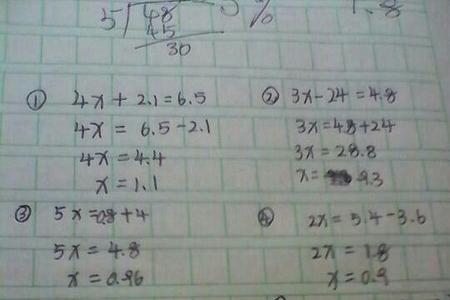 5 48 %
45
30
① 4x + 2.1 = 6.5
4x = 6.5 - 2.1
4x = 4.4
x = 1.1
② 3x - 24 = 4.8
3x = 4.8 + 24
3x = 28.8
x = 9.3
③ 5x = 0.8 + 4
5x = 4.8
x = 0.96
④ 2x = 5.4 - 3.6
2x = 1.8
x = 0.9